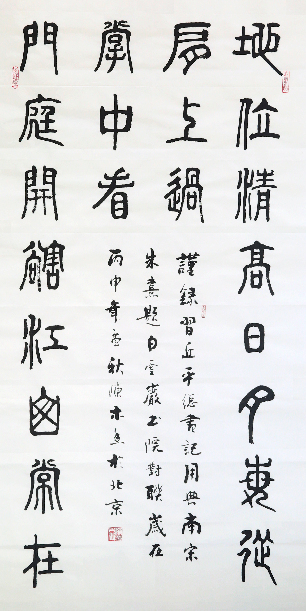 地位清高日月每從
肩上過
門庭開豁江山常在
掌中看
謹錄習近平總書記用典南宋
朱熹題白雲巖書院對聯歲在
丙申年孟秋於北京